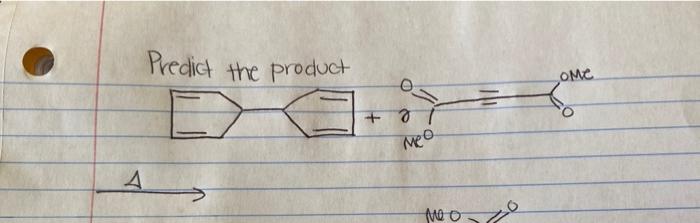 Predict the product
O
OMe
+ 2
O
MeO
Δ
MeO
O